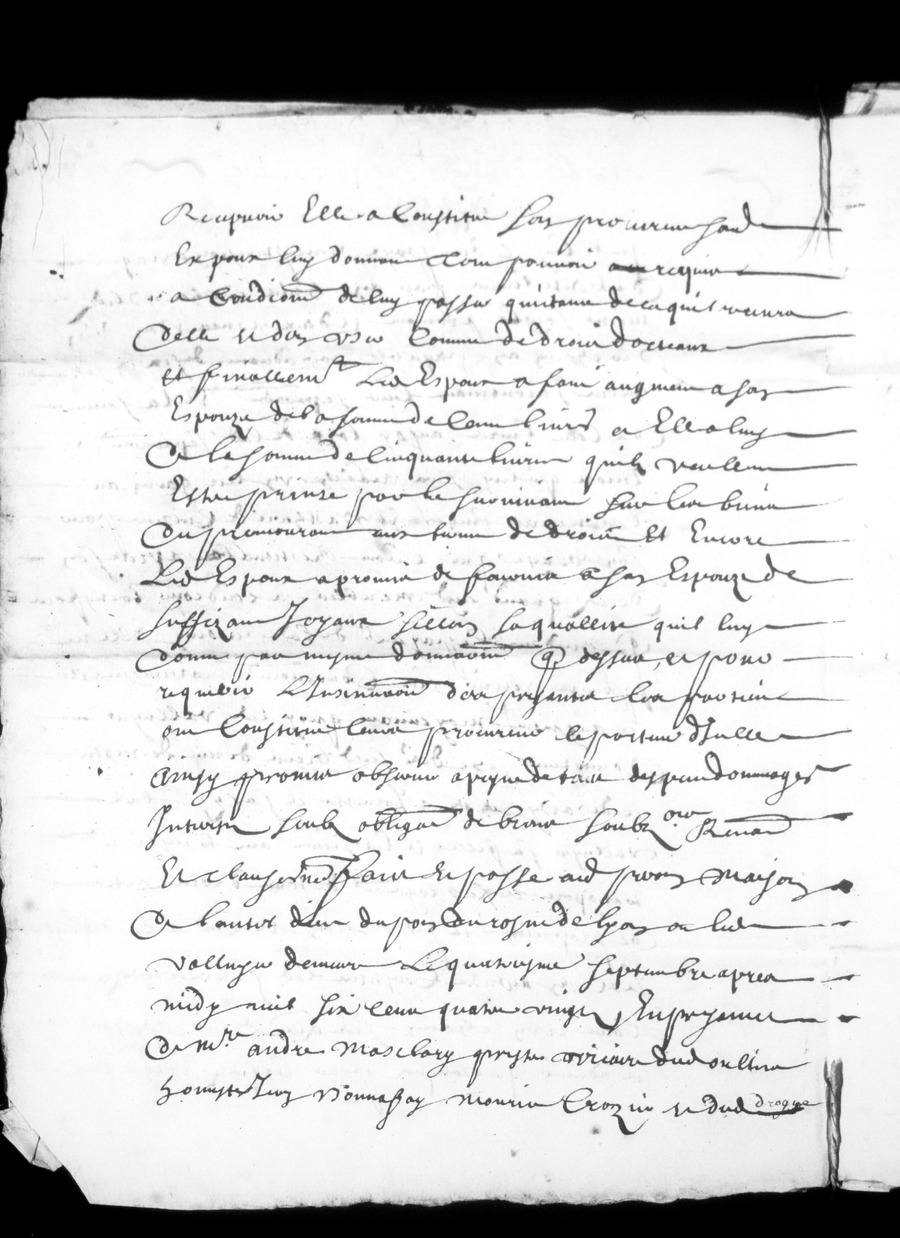 Recepvoir Elle a Constitue son procureur sond
Expoux luy donnant tout pouvoir requis
a Condiõn de luy passer quitance de ce quil recevra
delle et des siens Comme de droict
Et finallemt Led Espoux a faict augment a son
Espouze de la somme de Cent livres et Elle a luy
De la somme de Cinquante livres quilz veullent
Estre prinse par le survivant sur les biens
Du premourant aux termes de droict Et Encore
Led Espoux a promis de fournir a son Espouze de
suffizant Joyaux sellon sa quallite quil luy
donne par mesme donnaõn q dessus, et pour
requerir L'Insinuaõn des presantes les parties
ont Constitue leurs procureurs le porteur dIcelle
Ainsy promis observer a peyne de tous despens dommages
Interestz soubz obligaõn de biens soubzõns Renonõn
Et clauses faict et passe aud maison
De du pont du rosne de lyon ou led
demeure Le quatriesme septembre apres
midy mil six cent quatre vingtz, En presence
De mre andre Masclary prestre vicaire dud oullins
honneste Jean Bonnassay et dud drogue